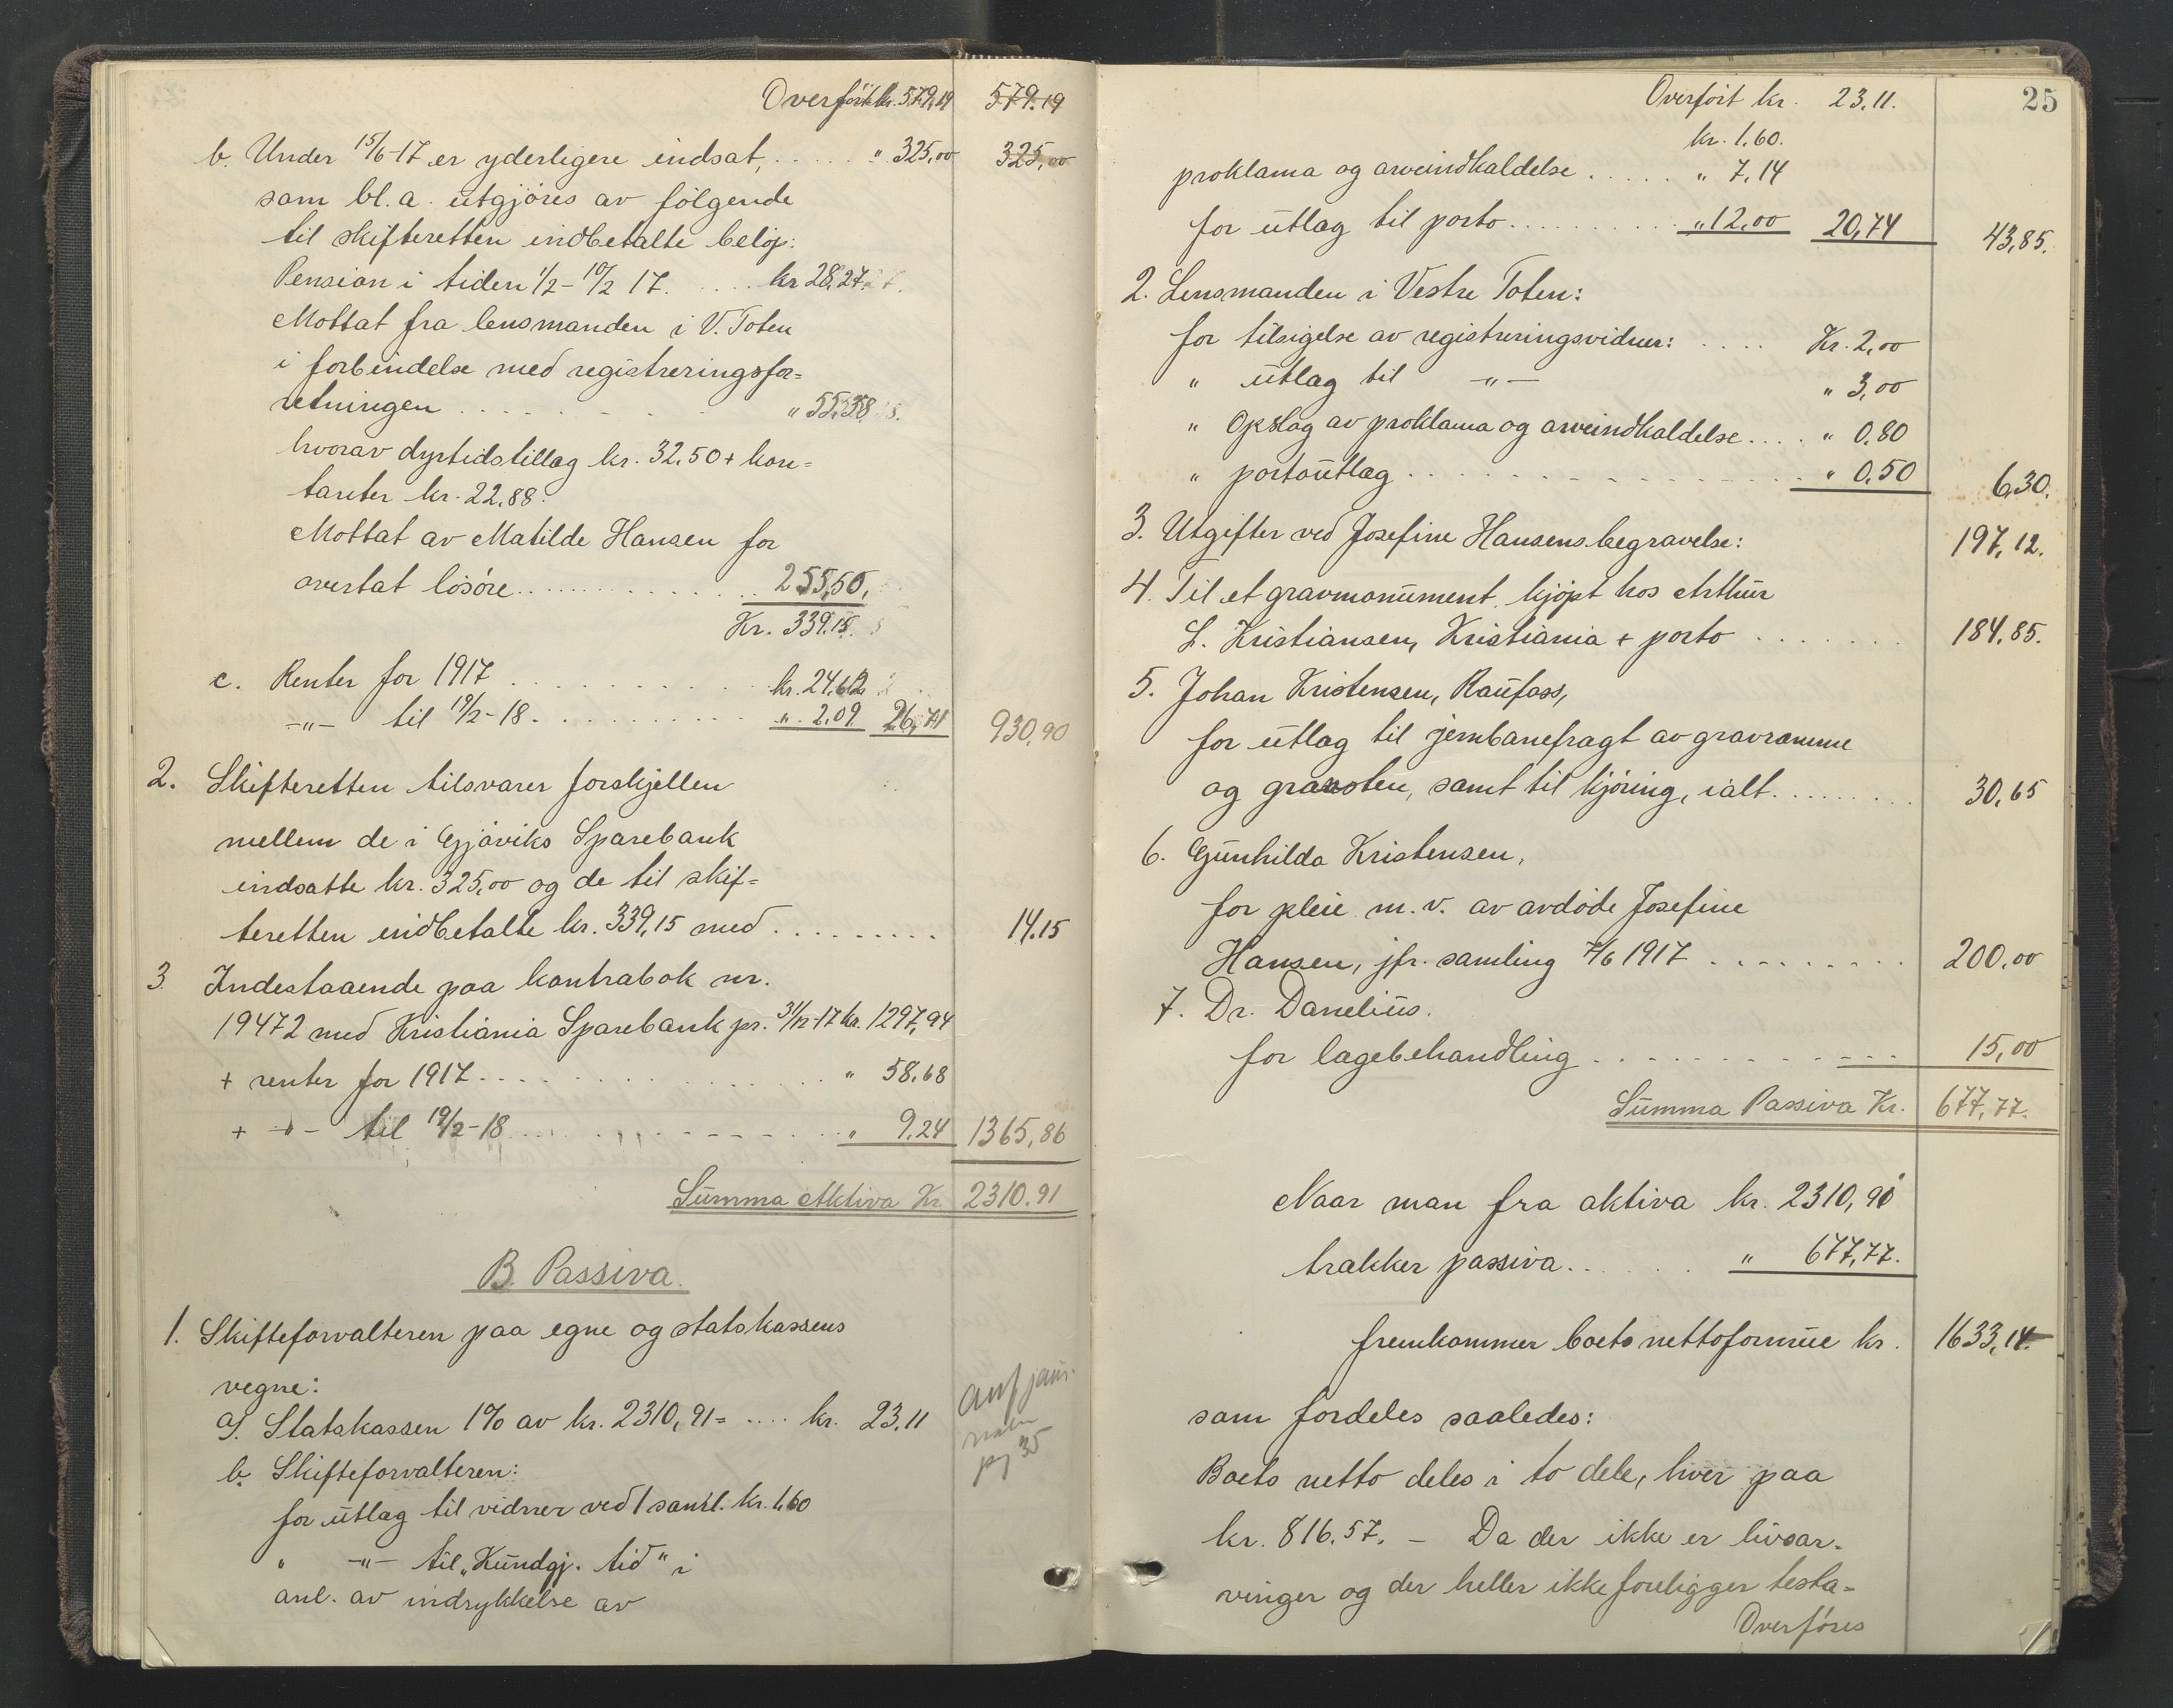 Overført kr. 579,19 579.19
b. Under 15/6-17 er yderligere indsat, ..... " 325,00 325,00
som bl. a. utgjøres av følgende
til skifteretten indbetalte beløp:
Pension i tiden 1/2 - 10/2 17. .... kr 28,27
Mottat fra lensmanden i V. Toten
i forbindelse med registreringsfor=
retningen ...... " 55,38
hvorav dyrtidstillæg kr. 32.50 + kon=
tanter kr. 22.88.
Mottat av Matilde Hansen for
avertat løsøre............... 255,50,
Kr. 339.15.
c. Renter for 1917 ........... kr. 24,62
-"- til 19/2-18. .......... ". 2.09 26,71 930,90
2. Skifteretten tilsvarer forskjellen
mellem de i Gjøviks Sparebank
indsatte kr. 325,00 og de til skif=
teretten indbetalte kr. 339,15 med ......... 14.15
3 Indestaaende paa kontrabok nr.
19472 med Kristiania Sparebank pr. 31/12-17 kr. 1297,94
+ renter for 1917 ................ " 58.68
+ -"- til 19/2-18 .............. " 9.24 1365,86
Summa Aktiva Kr. 2310.91
B. Passiva.
1. Skifteforvalteren paa egne og statskassens
vegne:
a). Statskassen 1% av kr. 2310,91 = .... kr. 23.11
b. Skifteforvalteren:
for utlæg til vidner ved 1 saml. kr. 1,60
" -"- til "Kundgj. tid" i
anl. av indrykkelse av
pg 35
25
Overført kr. 23.11.
kr. 1.60.
proklama og arveindkaldelse ..... " 7.14
for utlæg til porto .......... " 12,00 20,74 43,85.
2. Lensmanden i Vestre Toten:
for tilsigelse av registreringsvidner: .... Kr. 2,00
" utlæg til -"- " 3,00
" Opslag av proklama og arveindkaldelse .... " 0.80
" portoutlæg ................ " 0.50 6,30.
3. Utgifter ved Josefine Hansens begravelse: 197,12.
4. Til et gravmonument kjøpt hos Arthur
L. Kristiansen, Kristiania + porto ...... 184,85.
5. Johan Kristensen, Raufoss,
for utlæg til jernbanefragt av gravramme
og gravsten, samt til kjøring, ialt ........ 30,65
6. Gunhilda Kristensen,
for pleie m. v. av avdøde Josefine
Hansen, jfr. samling 7/6 1917 ......... 200,00
7. Dr. Danelius.
for lægebehandling ............. 15,00
Summa Passiva Kr. 677,77.
Naar man fra aktiva kr. 2310,91
trækker passiva ...... " 677,77.
fremkommer boets nettoformue kr. 1633,14
som fordeles saaledes:
Boets netto deles i to dele, hver paa
kr. 816.57. - Da der ikke er livsar-
vinger og der heller ikke foreligger testa=
Overføres